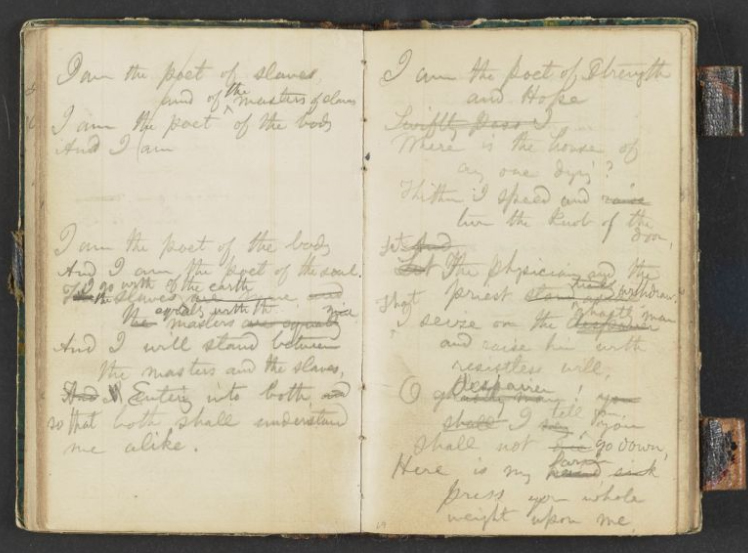 I am the poet of slaves,
and of the masters of slaves
I am the poet of the body
And I am
I am the poet of the body
And I am the poet of the soul.
I go with the slaves of the earth
are mine, and
equals with the
The masters are equally mine
And I will stand between
the masters and the slaves,
And I Entering into both, and
so that both shall understand
me alike.
I am the poet of Strength
and Hope
Swiftly pass I
Where is the house of
any one dying?
Thither I speed and raise
turn the knob of the
door,
Let And
Let The physician and the
priest stand timidly withdraw,
That
I seize on the ghastly man
and raise him with
resistless will;
O despairer! you
ghastly man
shall I tell you,
say, you
shall not die go down,
Here is my hand arm sink
press your whole
weight upon me,